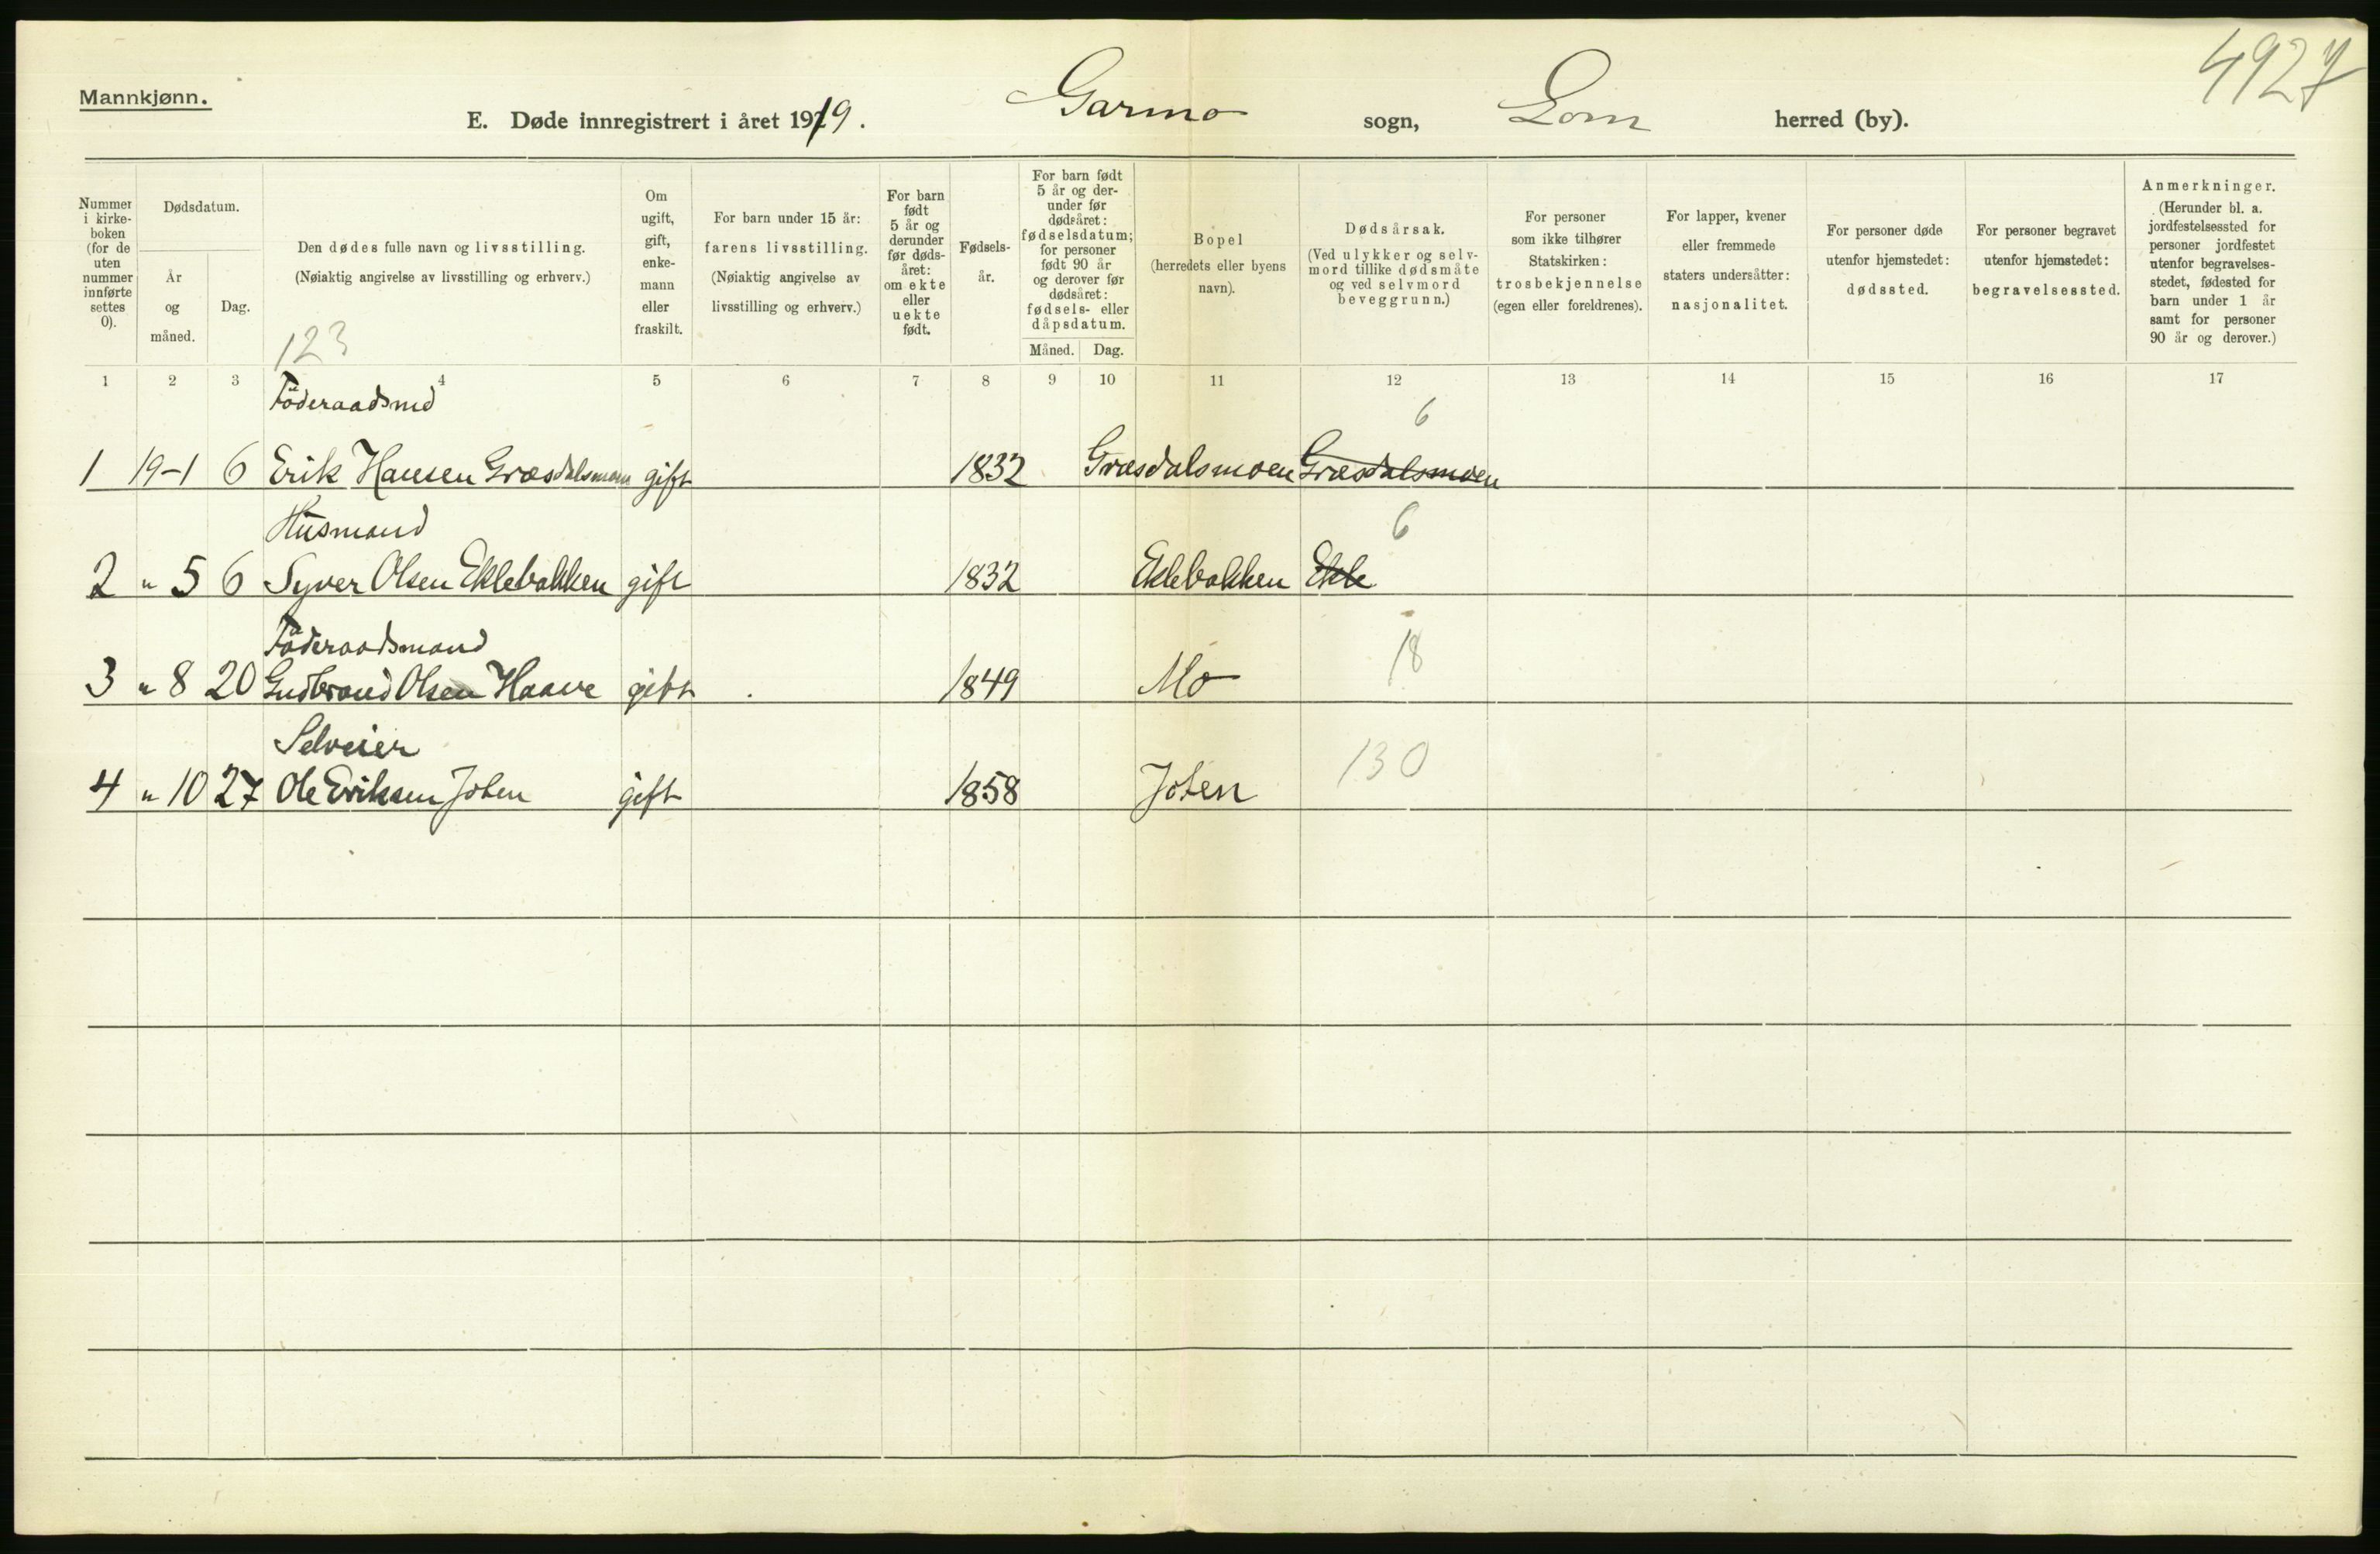 4927
Mannkjønn.
E. Døde innregistrert i året 1919. Garmo sogn, Lom herred (by).
Nummer i kirke- boken (for de uten nummer innførte settes 0).
Dødsdatum.
År og måned.
Dag.
Den dødes fulle navn og livsstilling.
(Nøiaktig angivelse av livsstilling og erhverv.)
123
Om ugift, gift, enke- mann eller fraskilt.
For barn under 15 år:
farens livsstilling.
(Nøiaktig angivelse av
livsstilling og erhverv.)
For barn født 5 år og derunder før døds- året: om ekte eller uekte født.
Fødsels- år.
For barn født 5 år og der- under før dødsåret: fødselsdatum; for personer født 90 år og derover før dødsåret: fødsels- eller dåpsdatum.
Måned. Dag.
Bopel
(herredets eller byens
navn).
Dødsårsak.
(Ved ulykker og selv-
mord tillike dødsmåte
og ved selvmord
beveggrunn.)
For personer
som ikke tilhører
Statskirken:
trosbekjennelse
(egen eller foreldrenes).
For lapper, kvener
eller fremmede
staters undersåtter:
nasjonalitet.
For personer døde
utenfor hjemstedet:
dødssted.
For personer begravet
utenfor hjemstedet:
begravelsessted.
Anmerkninger.
(Herunder bl. a.
jordfestelsessted for
personer jordfestet
utenfor begravelses-
stedet, fødested for
barn under 1 år
samt for personer
90 år og derover.)
1 2 3 4 5 6 7 8 9 10 11 12 13 14 15 16 17
Föderaadsmd 6
1 19-1 6 Erik Hansen Græsdalsmoen gift 1832 Græsdalsmoen Græsdalsmoen
Husmand 6
2 " 5 6 Syver Olsen Eklebakken gift 1832 Eklebakken Ekle
Föderaadsmand 18
3 " 8 20 Gudbrand Olsen Haave gift 1849 Mo
Selveier 130
4 " 10 27 Ole Eriksen Joten gift 1858 Joten